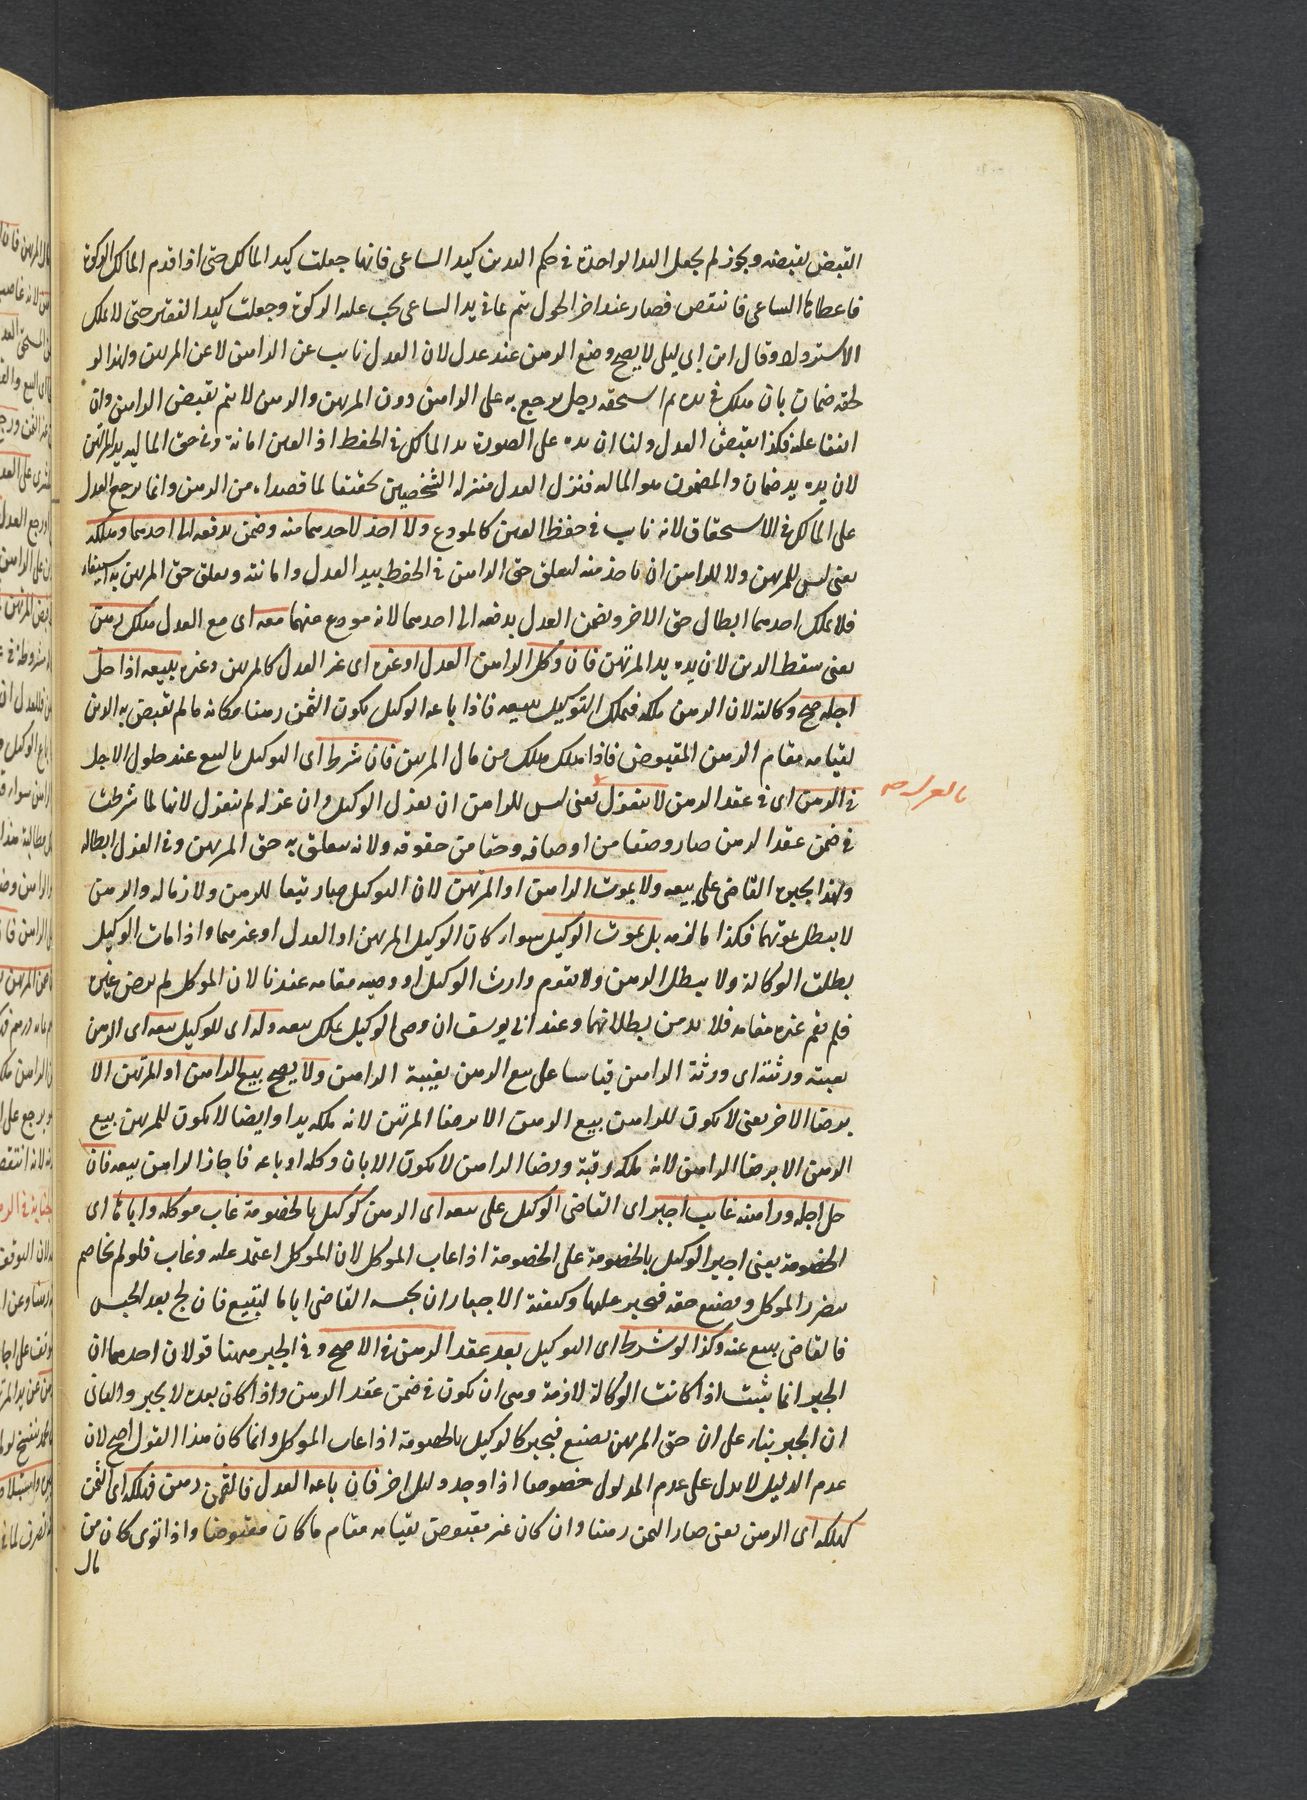 القبض بقبضه ويجوز لم يجعل اليد الواحدة فى حكم اليدين كيد الساعى فانها جعلت كيد المالك حتى اذا قدم المالك الزكوة
فاعطاها الساعى فانتقص فصار عند اخر الحول يتم بما فى يد الساعى يجب عليه الزكوة وجعلت كيد الفقير حتى لا يملك
الاسترداد وقال ابن ابى ليلى لا يصح وضع الرهن عند عدل لان العدل نايب عن الراهن لا عن المرتهن ولهذا لو
لحقه ضمان بان هلك فى يده ثم استحقه رجل يرجع به على الراهن دون المرتهن والرهن لا يتم بقبض الراهن وان
اتفقا عليه فكذا بقبض العدل ولنا ان يده على الصورة يد المالك فى الحفظ اذ العين امانة وفى حق المالية يد المرتهن
لان يده يد ضمان والمضمون هو المالية فنزل العدل منزلة الشخصين تحقيقا لما قصداه من الرهن وانما يرجع العدل
على المالك فى الاستحقاق لانه نايب فى حفظ العين كالمودع ولا اخذ لاحدهما منه وضمن بدفعه الى احدهما وهلكه
يعنى ليس للمرتهن ولا للراهن ان ياخذ منه لتعلق حق الراهن فى الحفظ بيد العدل وامانته وتعلق حق المرتهن به استيفاء
فلا يملك احدهما ابطال حق الاخر ويضمن العدل بدفعه الى احدهما لانه مودع عنهما معه اى مع العدل هلك رهن
يعنى سقط الدين لان يده يد المرتهن فان وكل الراهن العدل او غيره اى غير العدل كالمرتهن وغيره ببيعه اذا حل
اجله صح وكالته لان الرهن ملكه فيملك التوكيل ببيعه فاذا باعه الوكيل يكون الثمن رهنا مكانه ما لم يقبض به الدين
لقيامه مقام الرهن المقبوض فاذا هلك هلك من مال المرتهن فان شرط اى التوكيل بالبيع عند حلول الاجل
فى الرهن اى فى عقد الرهن لا ينعزل يعنى ليس للراهن ان يعزل الوكيل وان عزله لم ينعزل لانها لما شرطت
بالعزل صح
فى ضمن عقد الرهن صار وصفا من اوصافه وحقا من حقوقه ولانه يتعلق به حق المرتهن وفى العزل ابطاله
ولهذا يجبره القاضى على بيعه ولا بموت الراهن او المرتهن لان التوكيل صار تبعا للرهن ولازما له والرهن
لا يبطل بموتهما فكذا ما لزمه بل بموت الوكيل سواء كان الوكيل المرتهن او العدل او غيرهما واذا مات الوكيل
بطلت الوكالة ولا يبطل الرهن ولا يقوم وارث الوكيل او وصيه مقامه عندنا لان الموكل لم يرض بغيره
فلم يقم غيره مقامه فلا بد من بطلانها وعند ابى يوسف ان وصى الوكيل يملك بيعه وله اى للوكيل بيعه اى الرهن
بغيبة ورثته اى ورثة الراهن قياسا على بيع الرهن بغيبة الراهن ولا يصح بيع الراهن او المرتهن الا
برضا الاخر يعنى لا يكون للراهن بيع الرهن الا برضا المرتهن لانه ملكه يدا وايضا لا يكون للمرتهن بيع
الرهن الا برضا الراهن لانه ملكه رقبة ورضا الراهن لا يكون الا بان وكله او باعه فاجاز الراهن بيعه فان
حل اجله وراهنه غايب اجبر اى القاضى الوكيل على بيعه اى الرهن كوكيل بالخصومة غاب موكله واباها اى
الخصومة يعنى اجبر الوكيل بالخصومة على الخصومة اذا غاب الموكل لان الموكل اعتمد عليه وغاب فلو لم يخاصم
يتضرر الموكل ويضيع حقه فيجبر عليها وكيفية الاجبار ان يحبسه القاضى اياما ليبيع فان لج بعد الحبس
فالقاضى يبيع عنه وكذا لو شرط اى التوكيل بعد عقد الرهن فى الاصح وفى الجبر ههنا قولان احدهما ان
الجبر انما يثبت اذا كانت الوكالة لازمة وهى ان يكون فى ضمن عقد الرهن واذا كان بعده لا يجبر والثانى
ان الجبر بناء على ان حق المرتهن يضيع فيجبر كالوكيل بالخصومة اذا غاب الموكل وانما كان هذا القول اصح لان
عدم الدليل لا يدل على عدم المدلول خصوصا اذا وجد دليل اخر فان باعه العدل فالثمن رهن فهلكه اى الثمن
كهلكه اى الرهن يعنى صار الثمن رهنا وان كان غير مقبوض لقيامه مقام ما كان مقبوضا واذا توى كان من
مال